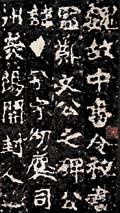 魏故中書令秘書
監鄭文公之碑公
諱字幼麟司
州熒陽開封人